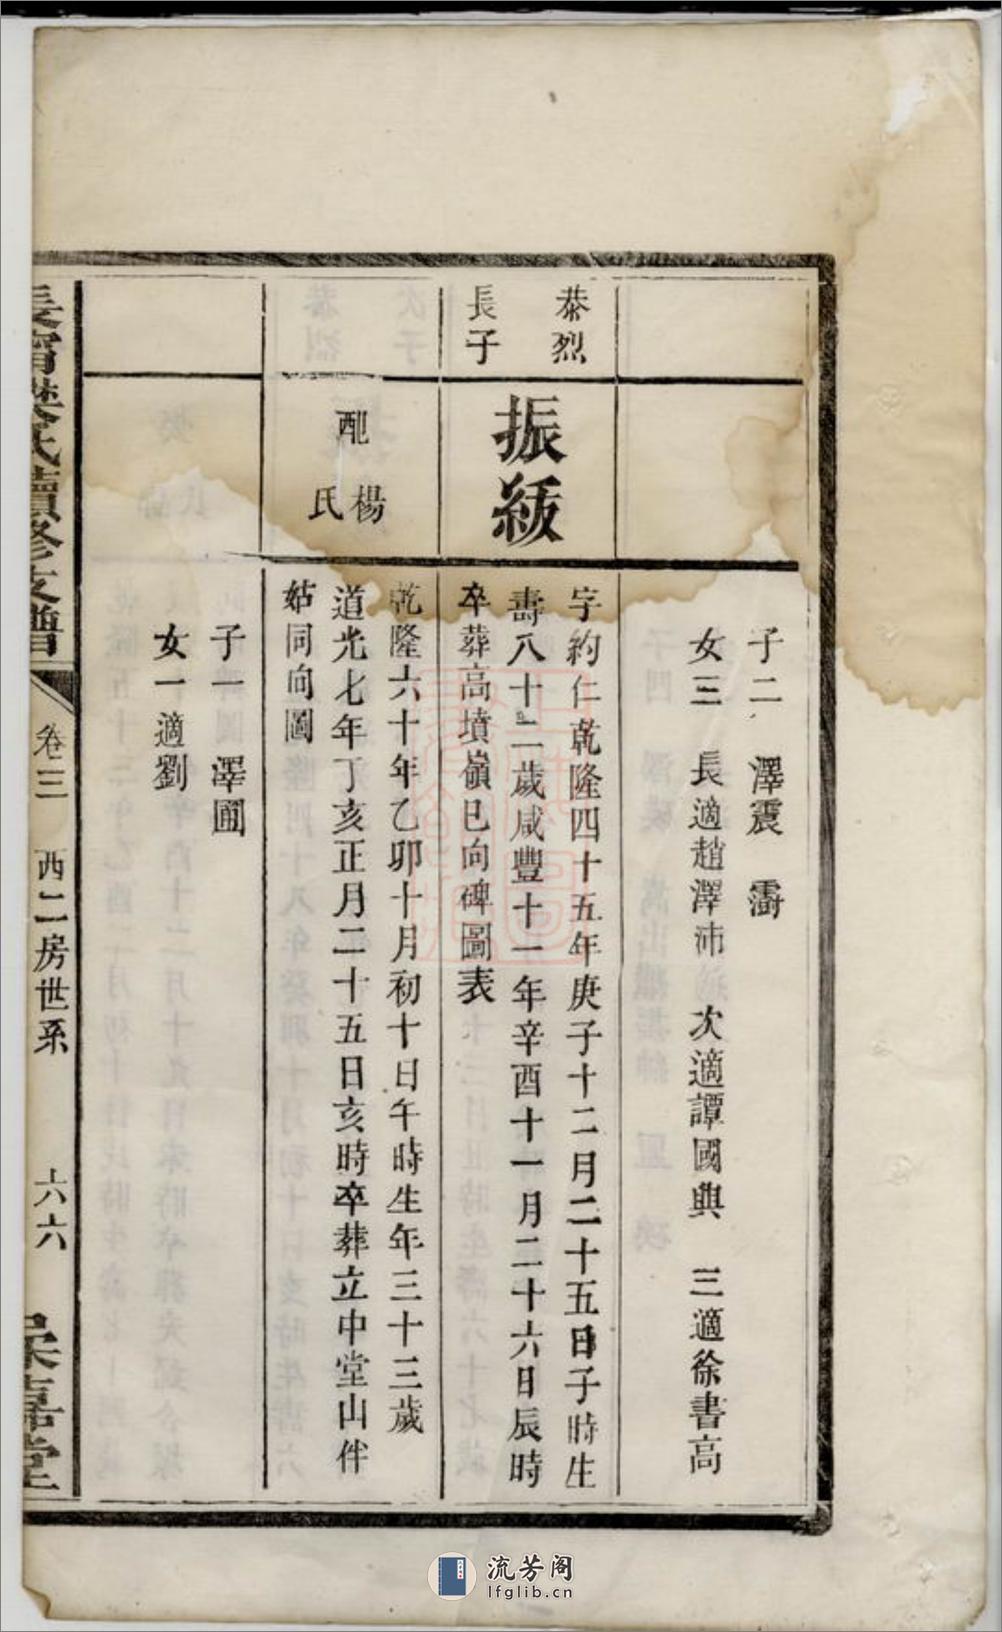 子二 澤震 霨
女三 長適趙澤沛 次適譚國興 三適徐書高
恭烈
長子
振紱
字約仁乾隆四十五年庚子十二月二十五日子時生
壽八十二歲咸豐十一年辛酉十一月二十六日辰時
卒葬高墳嶺巳向碑圖表
配楊氏
乾隆六十年乙卯十月初十日午時生年三十三歲
道光七年丁亥正月二十五日亥時卒葬立中堂山伴
姑同向圖
子一 澤圃
女一適劉
氏續修支譜
卷三 西二房世系 六六
嘉堂
流芳阁
lfglib.cn